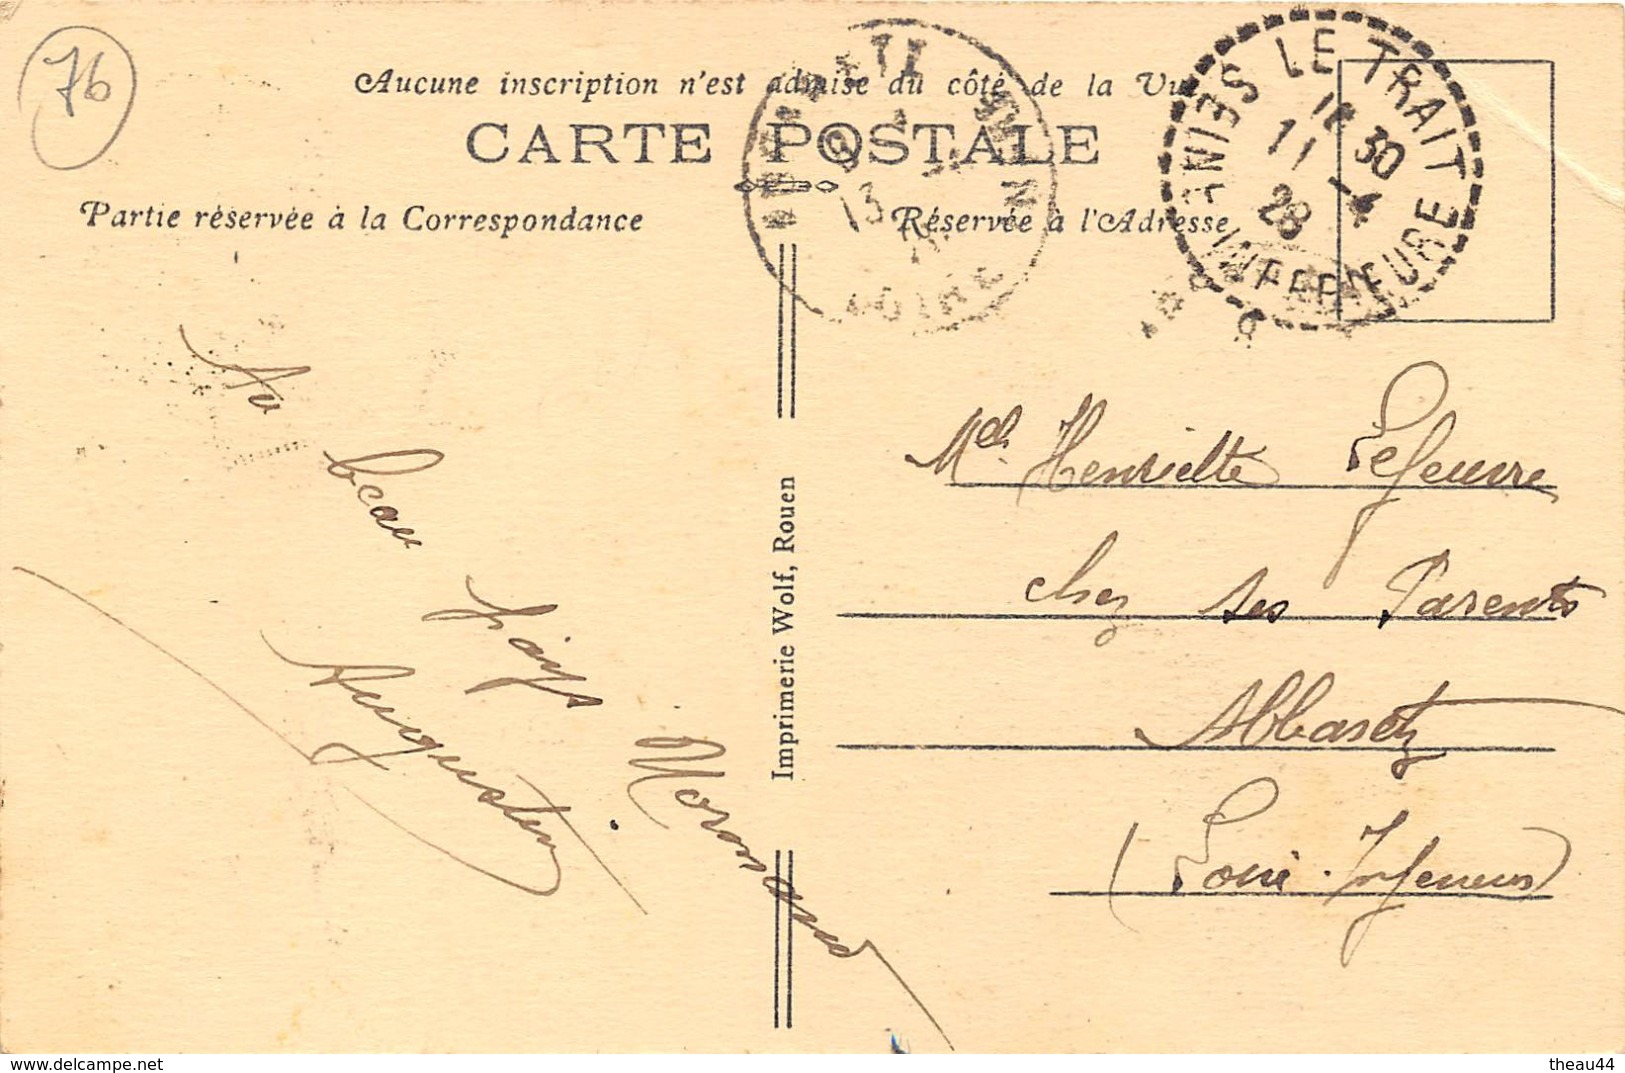 76
Aucune inscription n'est admise du côté de la Vue
CARTE POSTALE
Partie réservée à la Correspondance
Réservée à l'Adresse
LE TRAIT
SEINE INFERIEURE
30
11 -4
28
13
LOIRE
Au
beau
pays
Normand
Augustin
Imprimerie Wolf, Rouen
Melle Henriette Lefeuvre
chez ses Parents
Abbaretz
(Loire-Inférieure)
delcampe.net
theau44